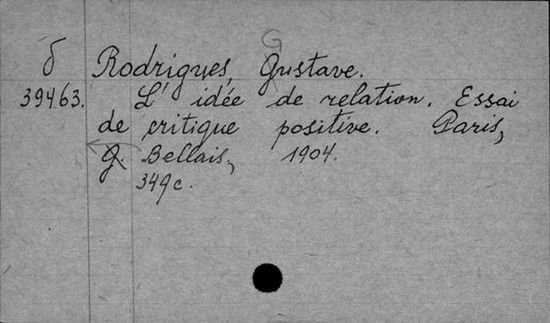 δ Rodrigues, Gustave.
39463. L'idée de relation. Essai
de critique positive. Paris,
G. Bellais, 1904.
349c.